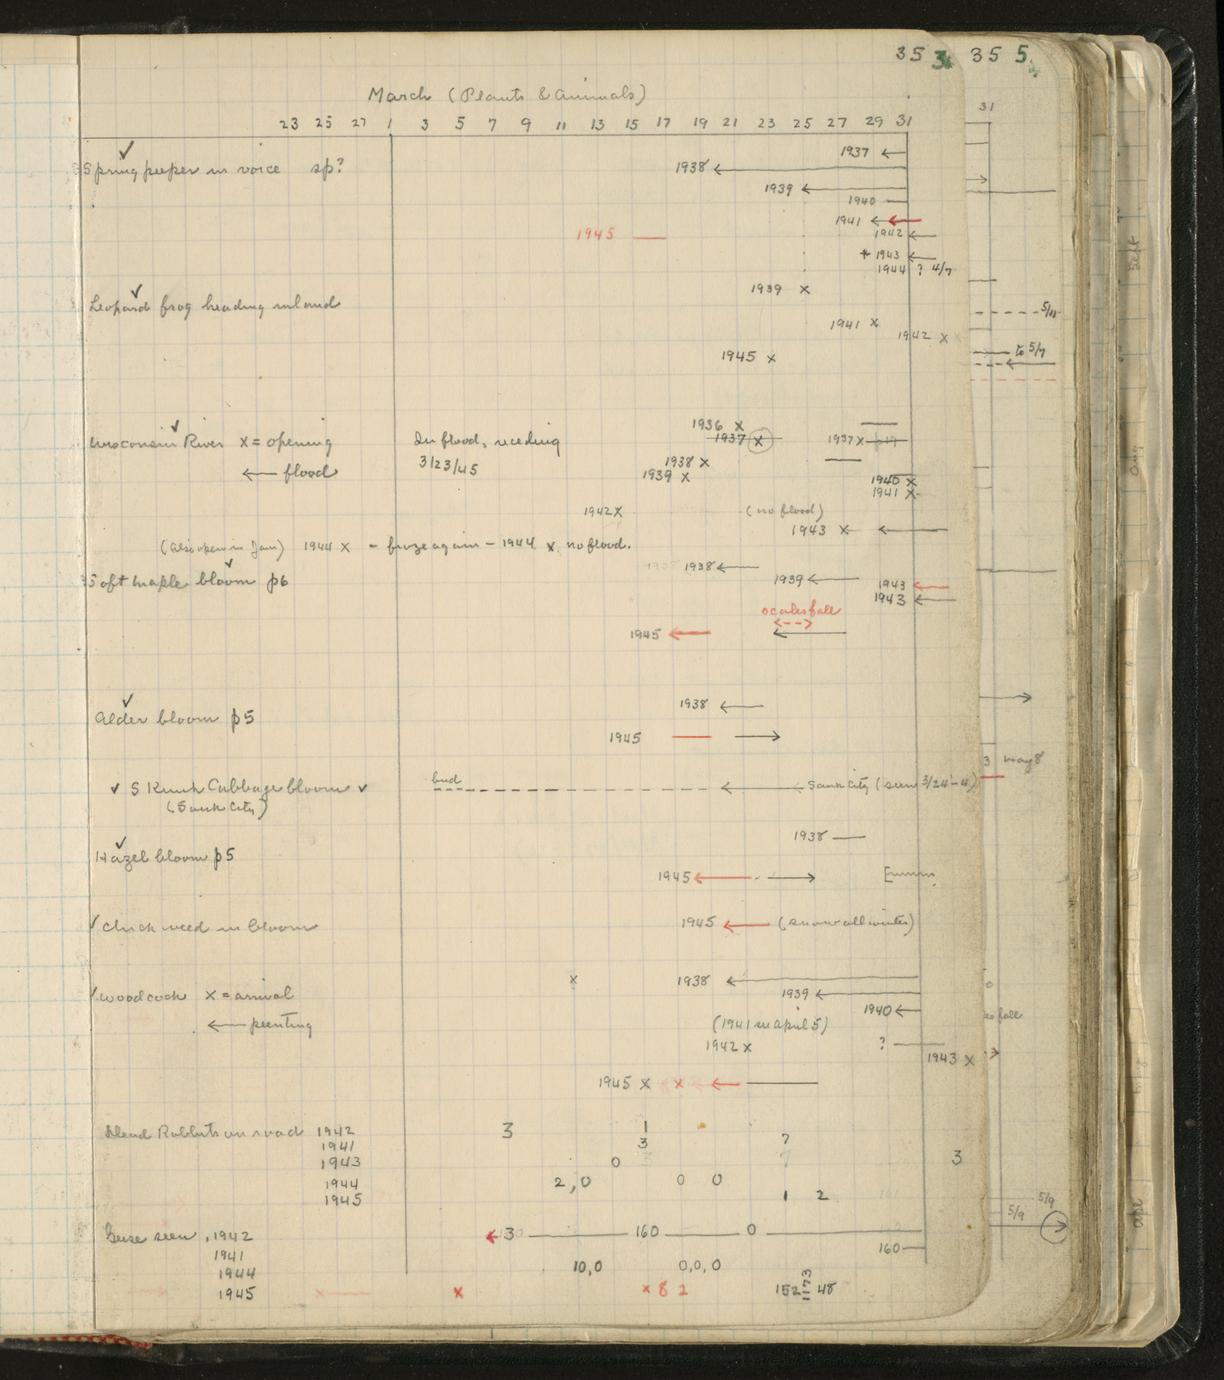 353 355
March (Plants & Animals)
23 25 27 1 3 5 7 9 11 13 15 17 19 21 23 25 27 29 31
31
Spring peeper in voice sp?
1937
1938
1939
1940
1941
1945
1942
1943
1944 ? 4/7
Leopard frog heading inland
1939 x
1941 x
1942 x
1945 x
5/11
to 5/7
Wisconsin River x = opening
← flood
In flood, receding
3/23/45
1936 x
1937 x
1937 x
1938 x
1939 x
1940 x
1941 x
1942 x
(no flood)
1943 x
(Also open in Jan) 1944 x - froze again - 1944 x no flood.
Soft Maple bloom p6
1938
1939
1943
1943
scales fall
1945
Alder bloom p5
1938
1945
Skunk Cabbage bloom
(Sauk City)
bud
Sauk City (seen 3/24-4)
3 May 8
Hazel bloom p5
1938
1945
Chickweed in bloom
1945 (snow all winter)
Woodcock x = arrival
← peenting
x 1938
1939
1940
(1941 in April 5)
1942 x ?
1943 x
1945 x x
fall
Dead Rabbits on road 1942 3 1
1941 3 7
1943 0 3
1944 2,0 0 0
1945 1 2
Geese seen, 1942 3 160 0
1941 160
1944 10,0 0,0,0
1945 x x x 8 2 152 1173 48
5/9
5/9
Sept
Aug